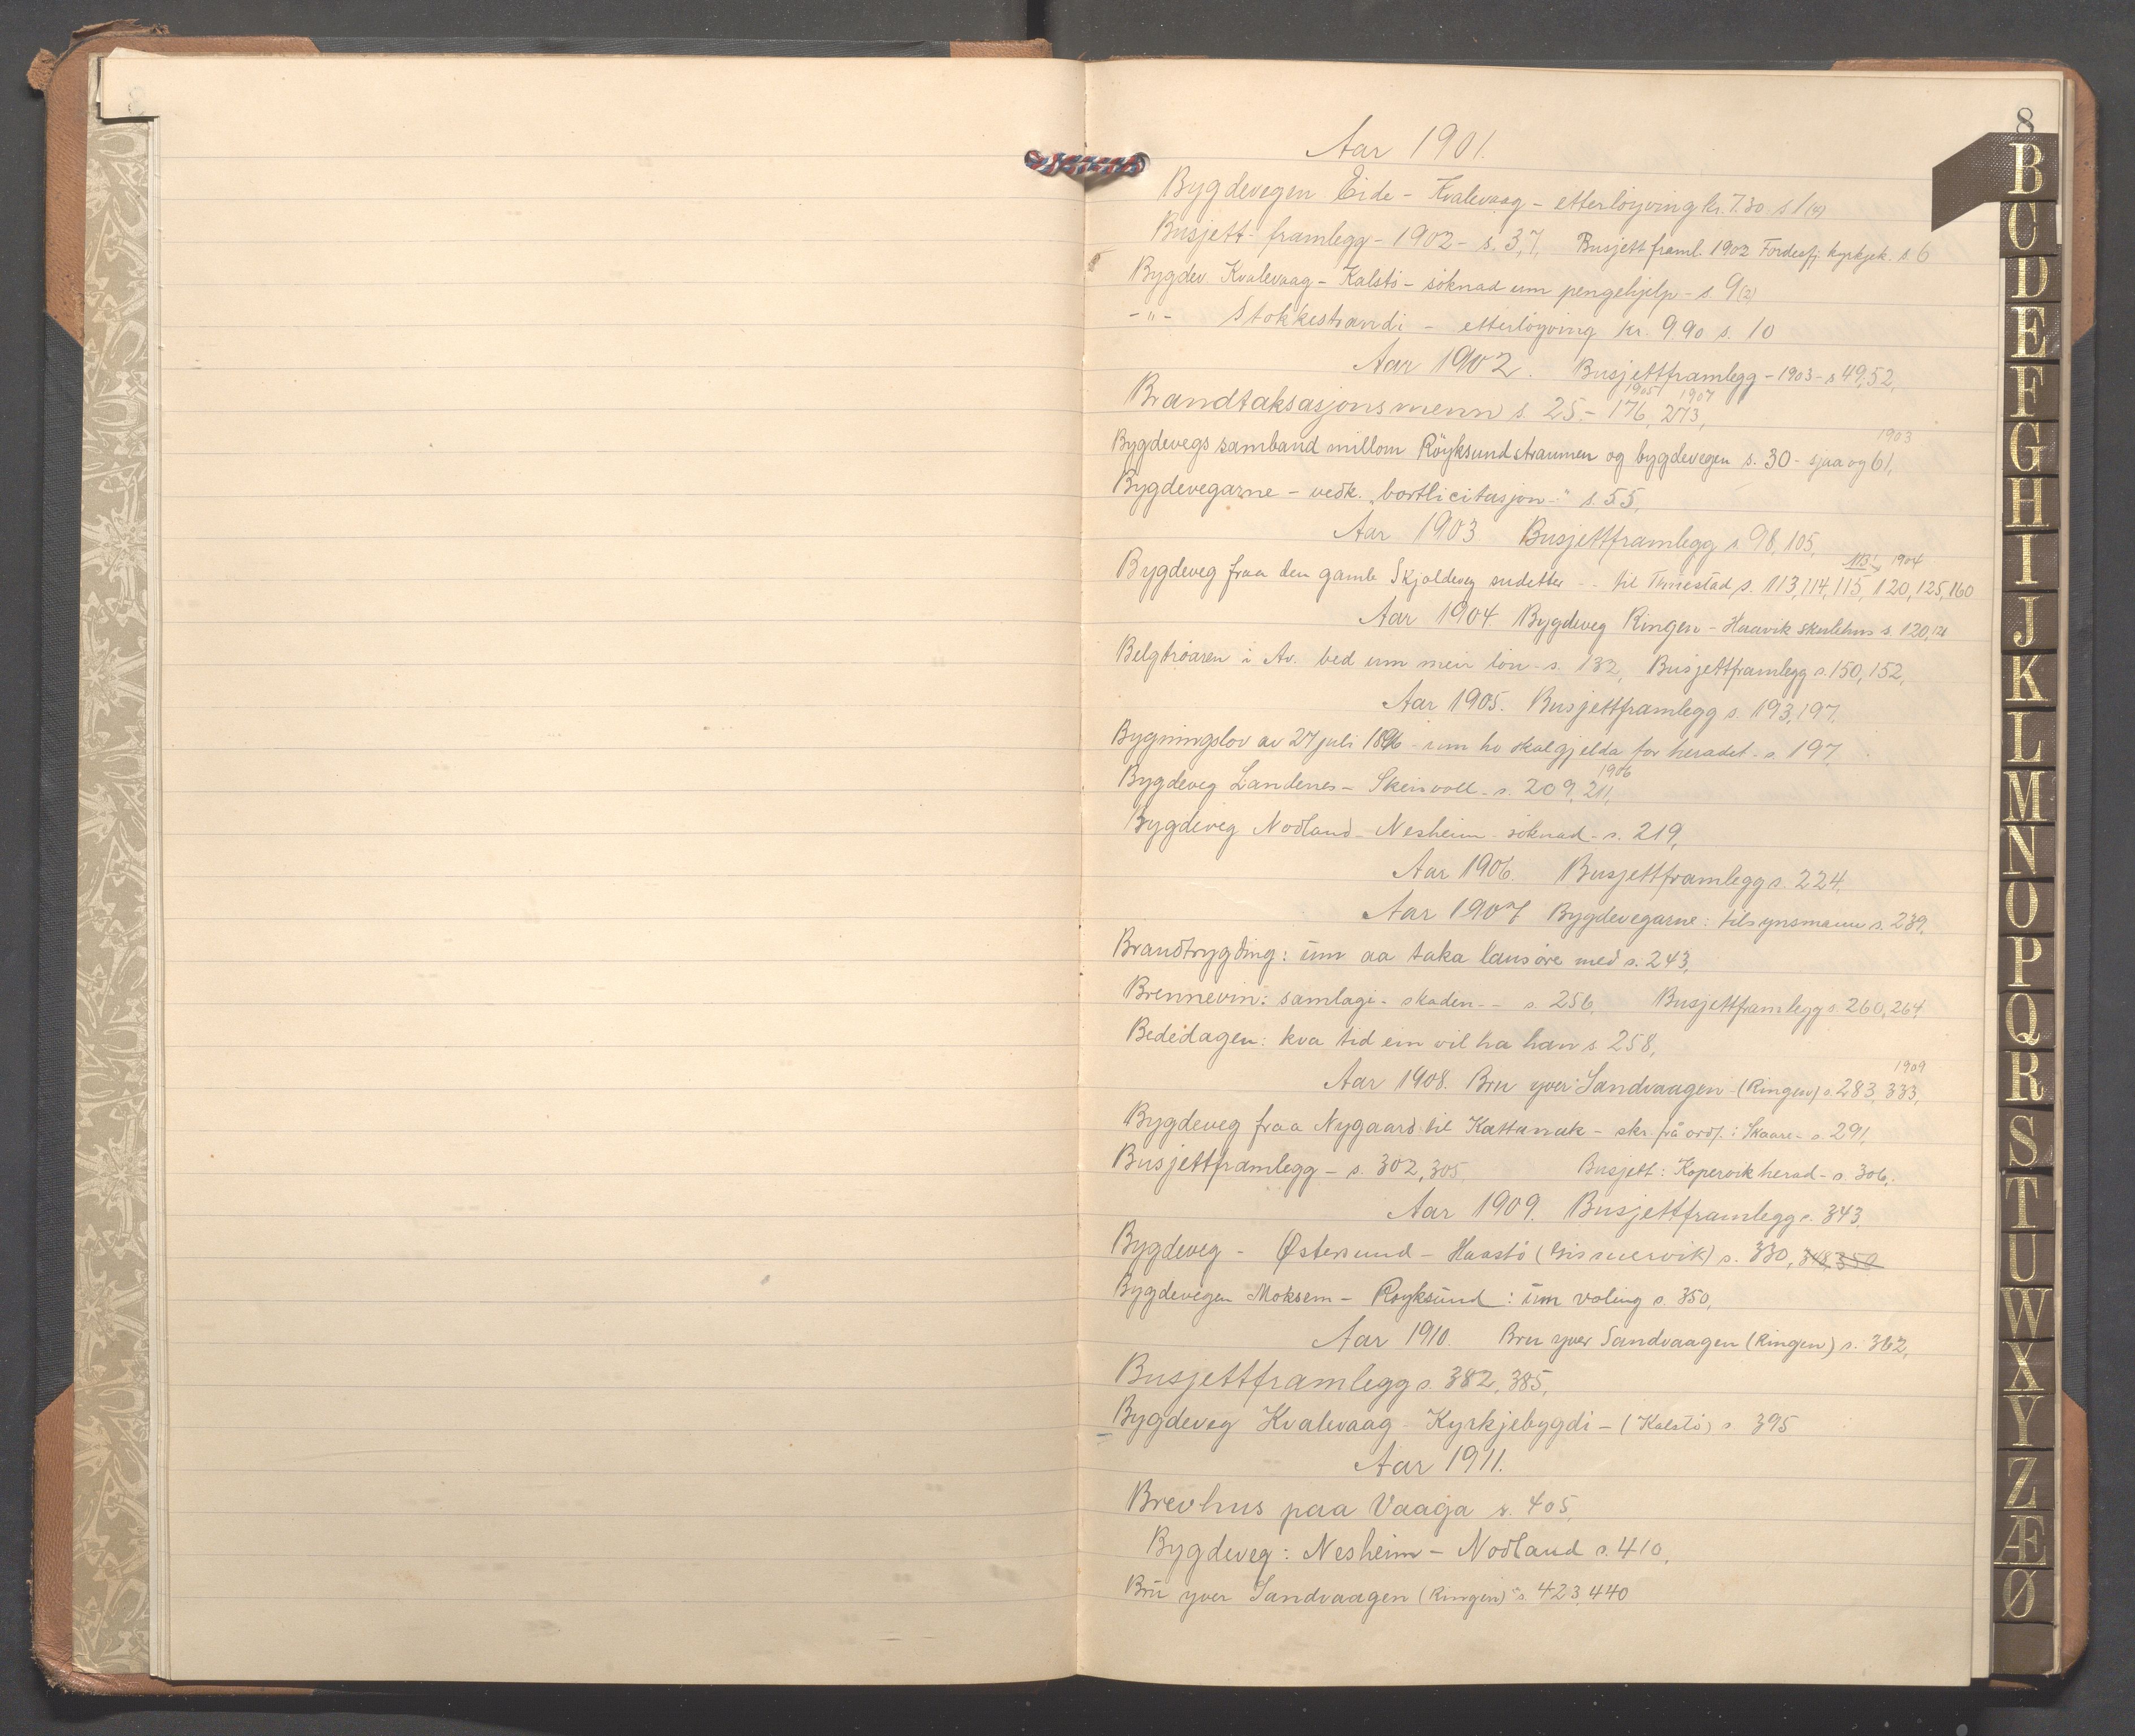 8
Aar 1901.
Bygdevegen Eide - Kvalevaag - etterløyving kr. 7.30 s 1 (4)
Busjett - framlegg - 1902 - s. 3,7, Busjett framl. 1902 Fordesfj. kyrkjek. s 6
Bygdev. Kvalevaag - Kalstö - söknad um pengehjelp - s. 9 (2)
- " - Stokkestrandi - etterlöyving kr. 9.90 s. 10
Aar 1902. Busjettframlegg - 1903 - s 49,52,
1905 1907
Brandtaksasjonsmenn s. 25. - 176, 273,
1903
Bygdevegs samband millom Röyksundstraumen og bygdevegen s. 30 - sjaa og 61,
Bygdevegarne - vedk. "bortlicitasjon -" s. 55,
Aar 1903 Busjettframlegg s. 98, 105,
NB! 1904
Bygdeveg fraa den gamle Skjoldeveg sudetter - - til Tunestad s. 113, 114, 115, 120, 125, 160
Aar 1904. Bygdeveg Ringen - Haavik skulehus s. 120, 121
Belgtröaren i Av. bed um meir lön - s. 132, Busjettframlegg s. 150, 152,
Aar 1905. Busjettframlegg s. 193, 197.
Bygningslov av 27 juli 1896 - um ho skal gjelda for heradet - s. 197,
1906
Bygdeveg Landenes - Skeisvoll - s. 209, 211,
Bygdeveg Nodland - Nesheim - söknad - s. 219,
Aar 1906. Busjettframlegg s. 224,
Aar 1907 Bygdevegarne: tilsynsmann s. 239,
Brandtrygding: um aa taka lausöre med s. 243,
Brennevin: samlagi - skaden - - s. 256, Busjettframlegg s. 260, 264
Bededagen: kva tid ein vil ha han s. 258,
1909
Aar 1908. Bru yver Sandvaagen - (Ringen) s. 283, 333,
Bygdeveg fraa Nygaard til Kattanuk - skr. frå ordf. i Skaare - s. 291,
Busjettframlegg - s. 302, 305, Busjett: Kopervik herad - s. 306,
Aar 1909. Busjettframlegg s. 343,
Bygdeveg - Østersund - Haastö (Gismervik) s. 330, 348, 350
Bygdevegen Moksem - Royksund: um voling s. 350,
Aar 1910. Bru yver Sandvaagen (Ringen) s. 362,
Busjettframlegg s. 382, 385,
Bygdeveg Kvalevaag - Kyrkjebygdi - (Kalstö) s. 395
Aar 1911.
Brevhus paa Vaaga s. 405,
Bygdeveg: Nesheim - Nodland s. 410,
Bru yver Sandvaagen (Ringen) s. 423, 440
B
C
D
E
F
G
H
I
J
K
L
M
N
O
P
Q
R
S
T
U
W
X
Y
Z
Æ
Ø